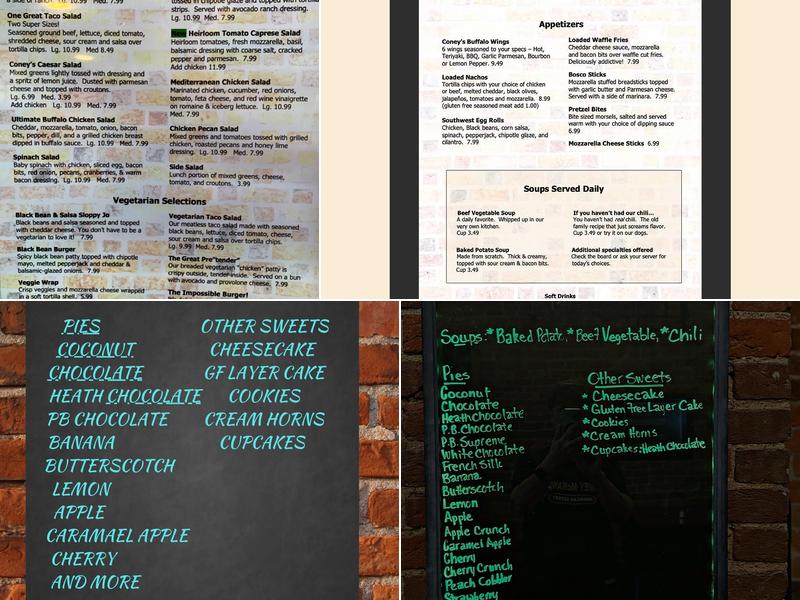 One Great Taco Salad
Two Super Sizes!
Seasoned ground beef, lettuce, diced tomato,
shredded cheese, sour cream and salsa over
tortilla chips. Lg. 10.99 Med 8.49
Coney's Caesar Salad
Mixed greens lightly tossed with dressing and
a spritz of lemon juice. Dusted with parmesan
cheese and topped with croutons.
Lg. 6.99 Med. 3.99
Add chicken Lg. 10.99 Med. 7.99
Ultimate Buffalo Chicken Salad
Cheddar, mozzarella, tomato, onion, bacon
bits, pepper, dill, and a grilled chicken breast
dipped in buffalo sauce. Lg. 10.99 Med. 7.99
Spinach Salad
Baby spinach with chicken, sliced egg, bacon
bits, red onion, pecans, cranberries, & warm
bacon dressing. Lg. 10.99 Med. 7.99
strips. Served with avocado ranch dressing.
Lg. 10.99 Med. 7.99
New Heirloom Tomato Caprese Salad
Heirloom tomatoes, fresh mozzarella, basil,
balsamic dressing with coarse salt, cracked
pepper and parmesan. 7.99
Add chicken 11.99
Mediterranean Chicken Salad
Marinated chicken, cucumber, red onions,
tomato, feta cheese, and red wine vinaigrette
on romaine & iceberg lettuce. Lg. 10.99
Med. 7.99
Chicken Pecan Salad
Mixed greens and tomatoes tossed with grilled
chicken, roasted pecans and honey lime
dressing. Lg. 10.99 Med. 7.99
Side Salad
Lunch portion of mixed greens, cheese,
tomato, and croutons. 3.99
Vegetarian Selections
Black Bean & Salsa Sloppy Jo
Black beans and salsa seasoned and topped
with cheddar cheese. You don't have to be a
vegetarian to love it! 7.99
Black Bean Burger
Spicy black bean patty topped with chipotle
mayo, melted pepperjack and cheddar &
balsamic-glazed onions. 7.99
Veggie Wrap
Crisp veggies and mozzarella cheese wrapped
in a soft tortilla shell. 5.99
Vegetarian Taco Salad
Our meatless taco salad made with seasoned
black beans, lettuce, diced tomato, cheese,
sour cream and salsa over tortilla chips.
Lg. 9.99 Med. 7.99
The Great Pre"tender"
Our breaded vegetarian "chicken" patty is
crispy outside, tender inside. Served on a bun
with avocado and provolone cheese. 7.99
The Impossible Burger!
Appetizers
Coney's Buffalo Wings
6 wings seasoned to your specs – Hot,
Teriyaki, BBQ, Garlic Parmesan, Bourbon
or Lemon Pepper. 9.49
Loaded Nachos
Tortilla chips with your choice of chicken
or beef, melted cheddar, black olives,
jalapeños, tomatoes and mozzarella. 8.99
(gluten free seasoned meat add 1.00)
Southwest Egg Rolls
Chicken, Black beans, corn salsa,
spinach, pepperjack, chipotle glaze, and
cilantro. 7.99
Loaded Waffle Fries
Cheddar cheese sauce, mozzarella
and bacon bits over waffle cut fries.
Deliciously addictive! 7.99
Bosco Sticks
Mozzarella stuffed breadsticks topped
with garlic butter and Parmesan cheese.
Served with a side of marinara. 7.99
Pretzel Bites
Bite sized morsels, salted and served
warm with your choice of dipping sauce
6.99
Mozzarella Cheese Sticks 6.99
Soups Served Daily
Beef Vegetable Soup
A daily favorite. Whipped up in our
very own kitchen.
Cup 3.49
Baked Potato Soup
Made from scratch. Thick & creamy,
topped with sour cream & bacon bits.
Cup 3.49
If you haven't had our chili...
You haven't had real chili. The old
family recipe that just screams flavor.
Cup 3.49 or try it on our dogs.
Additional specialties offered
Check the board or ask your server for
today's choices.
Soft Drinks
PIES
COCONUT
CHOCOLATE
HEATH CHOCOLATE
PB CHOCOLATE
BANANA
BUTTERSCOTCH
LEMON
APPLE
CARAMAEL APPLE
CHERRY
AND MORE
OTHER SWEETS
CHEESECAKE
GF LAYER CAKE
COOKIES
CREAM HORNS
CUPCAKES
Soups:*Baked Potato,*Beef Vegetable,*Chili
Pies
Coconut
Chocolate
Heath Chocolate
P.B. Chocolate
P.B. Supreme
White Chocolate
French Silk
Banana
Butterscotch
Lemon
Apple
Apple Crunch
Caramel Apple
Cherry
Cherry Crunch
Peach Cobbler
Strawberry
Other Sweets
* Cheesecake
* Gluten Free Layer Cake
*Cookies
*Cream Horns
*Cupcakes:Heath Chocolate